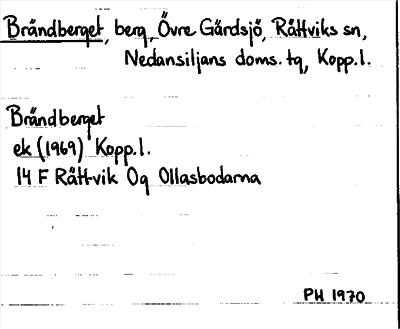 Brändberget, berg, Övre Gärdsjö, Rättviks sn,
Nedansiljans doms. tg, Kopp.l.
Brändberget
ek (1969) Kopp.l.
14 F Rättvik Og Ollasbodarna
PH 1970